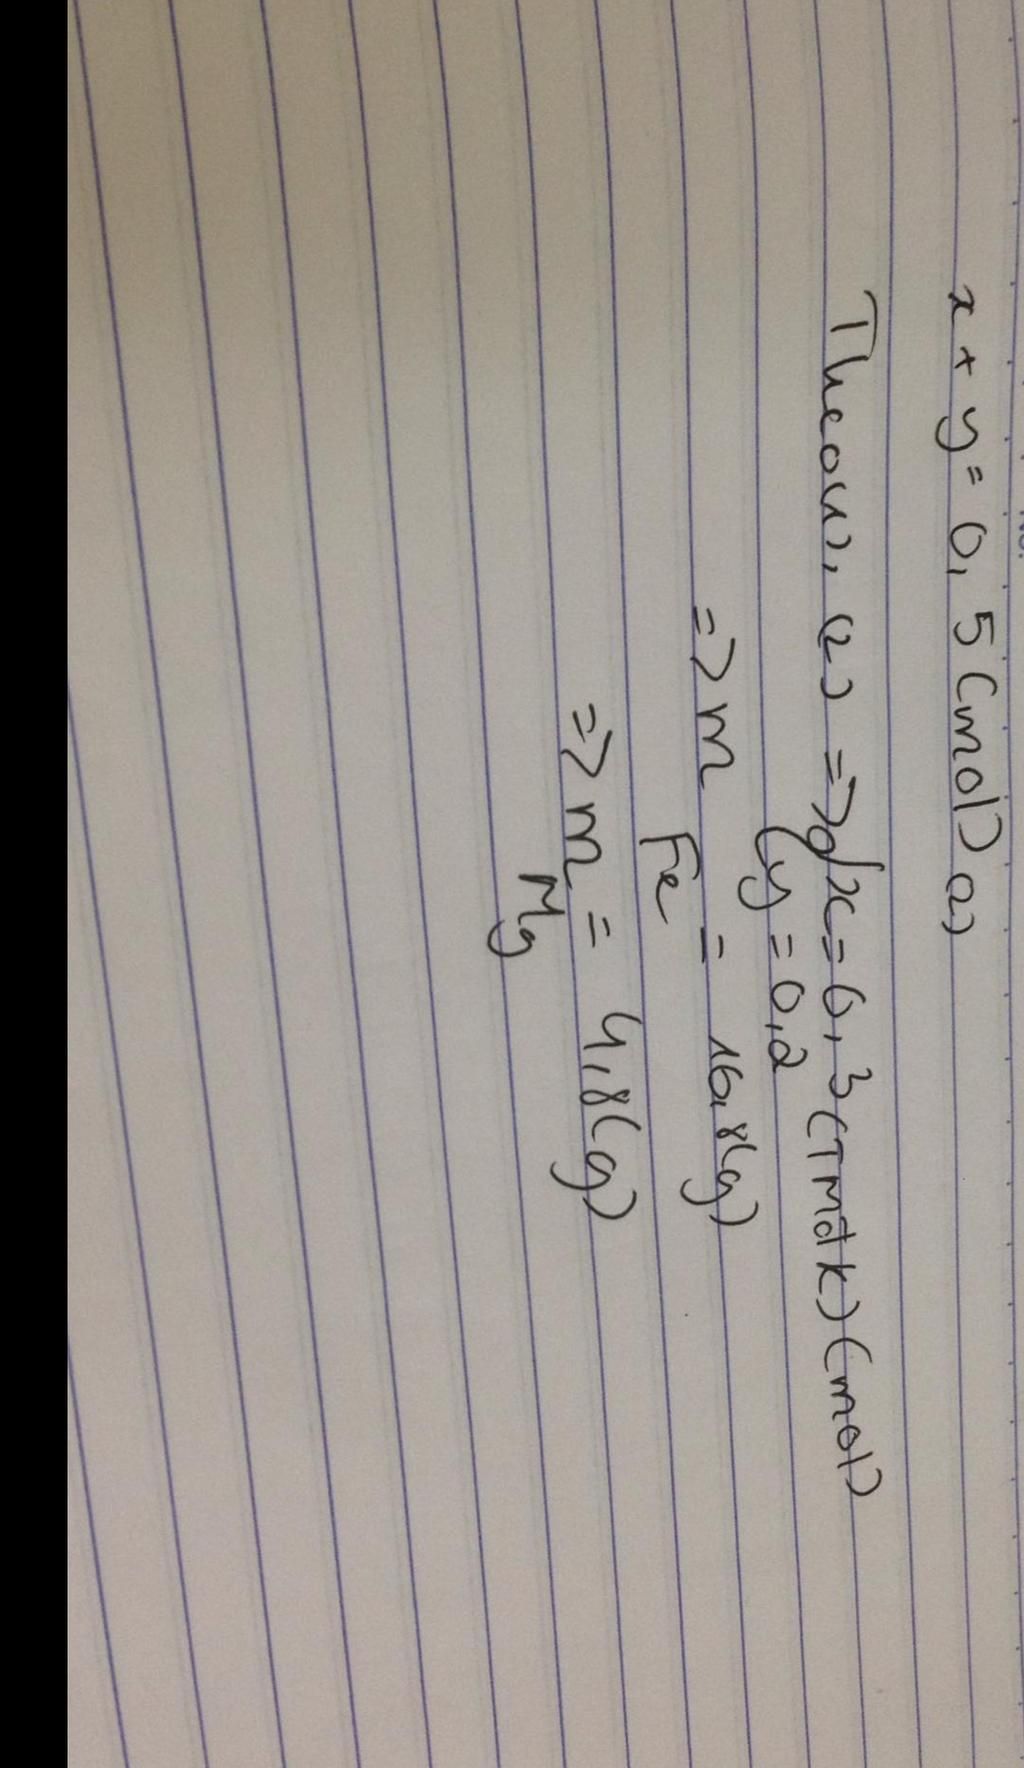 No.
x + y = 0,5 (mol) (2)
Theo (1), (2) => { x = 0,3 (TMđk) (mol)
y = 0,2
=> m Fe = 16,8 (g)
=> m Mg = 4,8 (g)